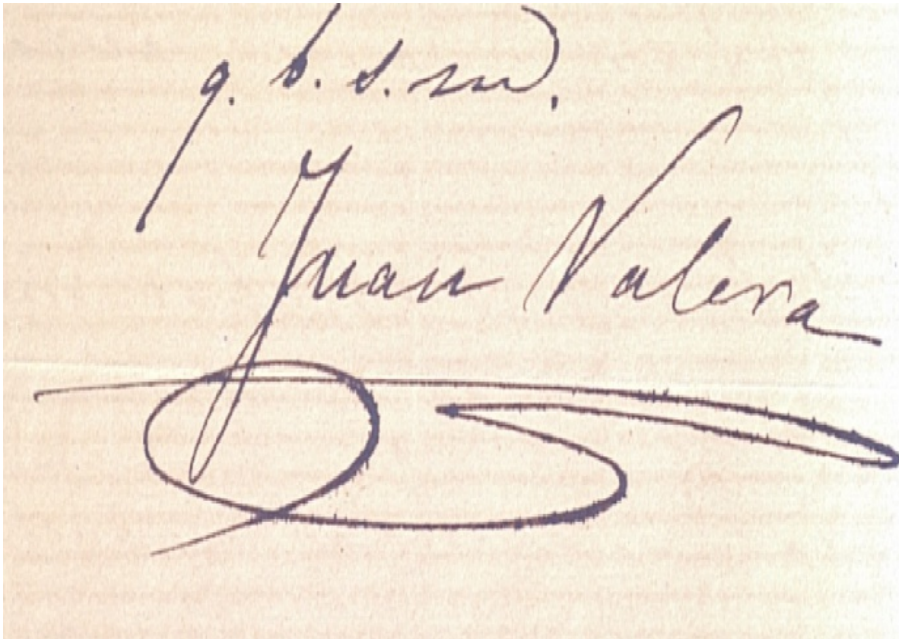 q. b. s. m.
Juan Valera